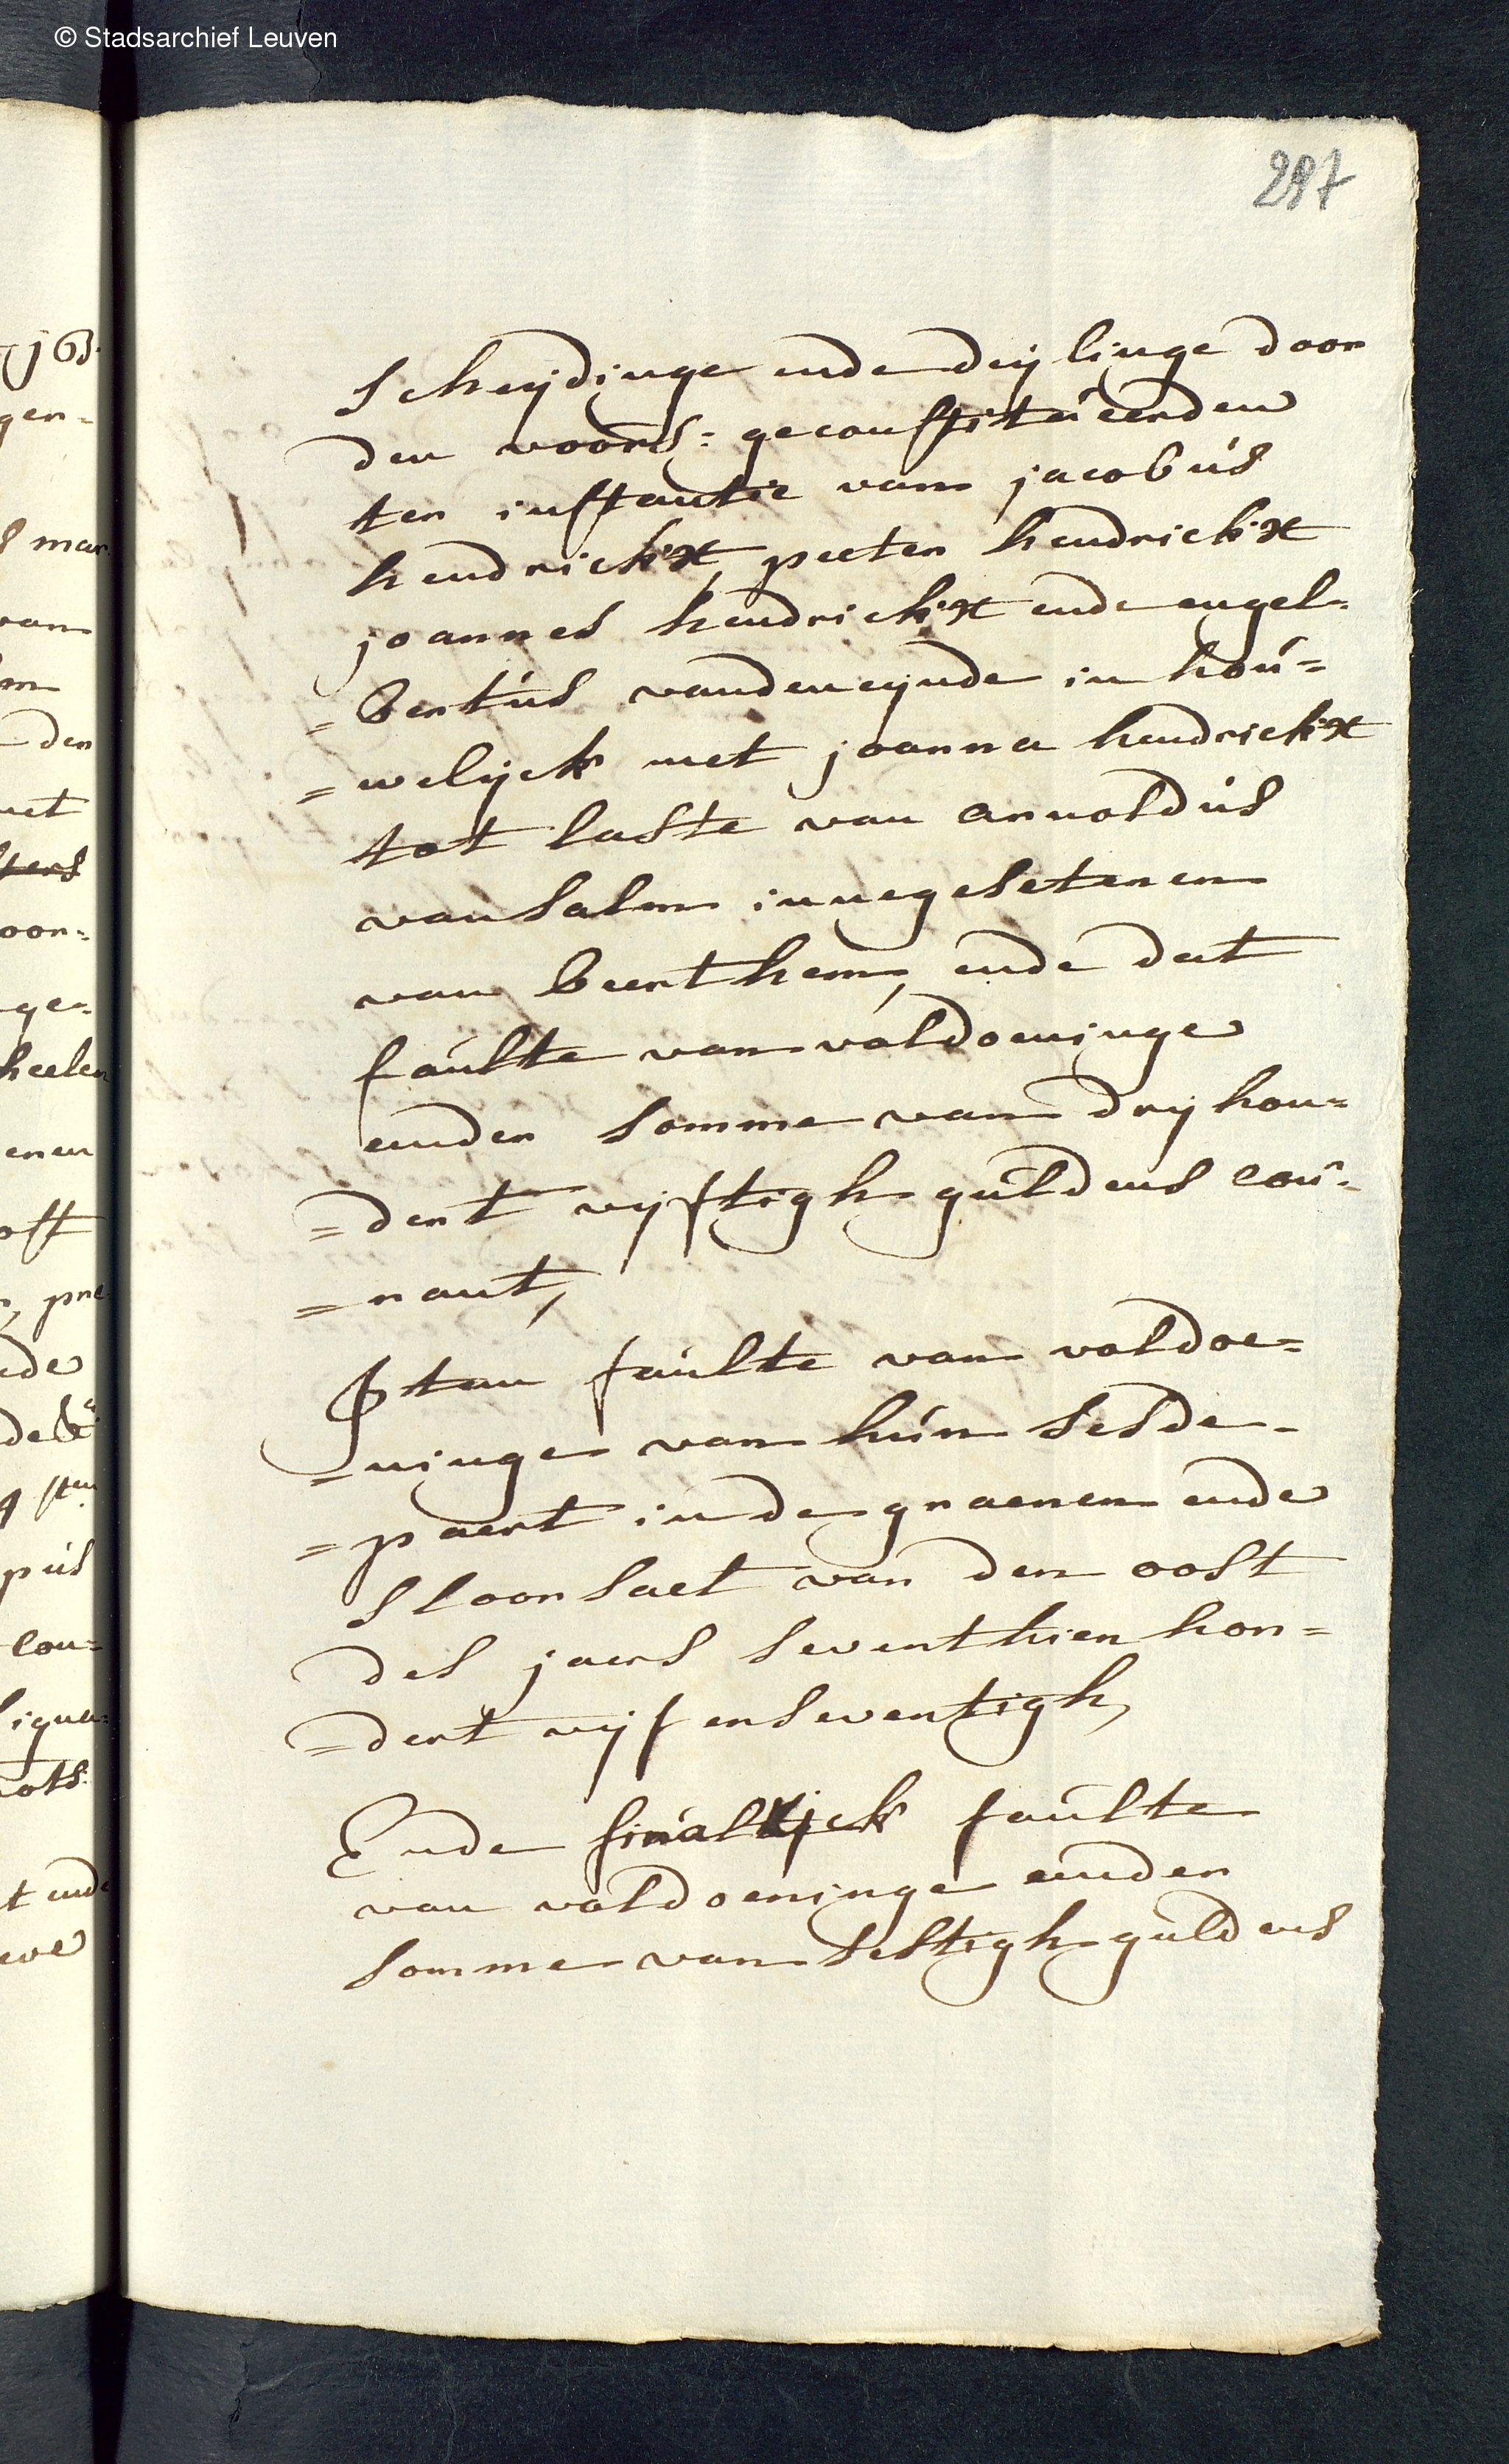 © Stadsarchief Leuven
287
scheijdinge ende deijlinge door
den voors: geconstitueerden
ten instantie van jacobus
hendrickx, peeter hendrickx
joannes hendrickx ende engel=
=bertus vandeneynde in hou=
=welijck met joanna hendrickx
tot laste van arnoldus
van salm innegesetenen
van beerthem, ende dat
faulte van voldoeninge
ender somme van dry hon=
=dert vyftigh guldens cou=
=rant,
Item faulte van voldoe=
=ninge van hun sesde
=paert in de graenen ende
sloorsaet van den oost
des jaers seventhien hon=
=dert vyf en seventigh,
Ende finalijck faulte
van voldoeninge ender
somme van sestigh guldens